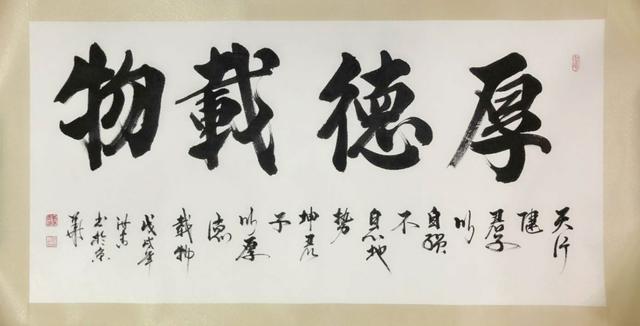 厚德載物
天行
健
君子
以
自强
不
息地
势
坤君
子
以厚
德
載物
戊戌年
洪
书於京
華